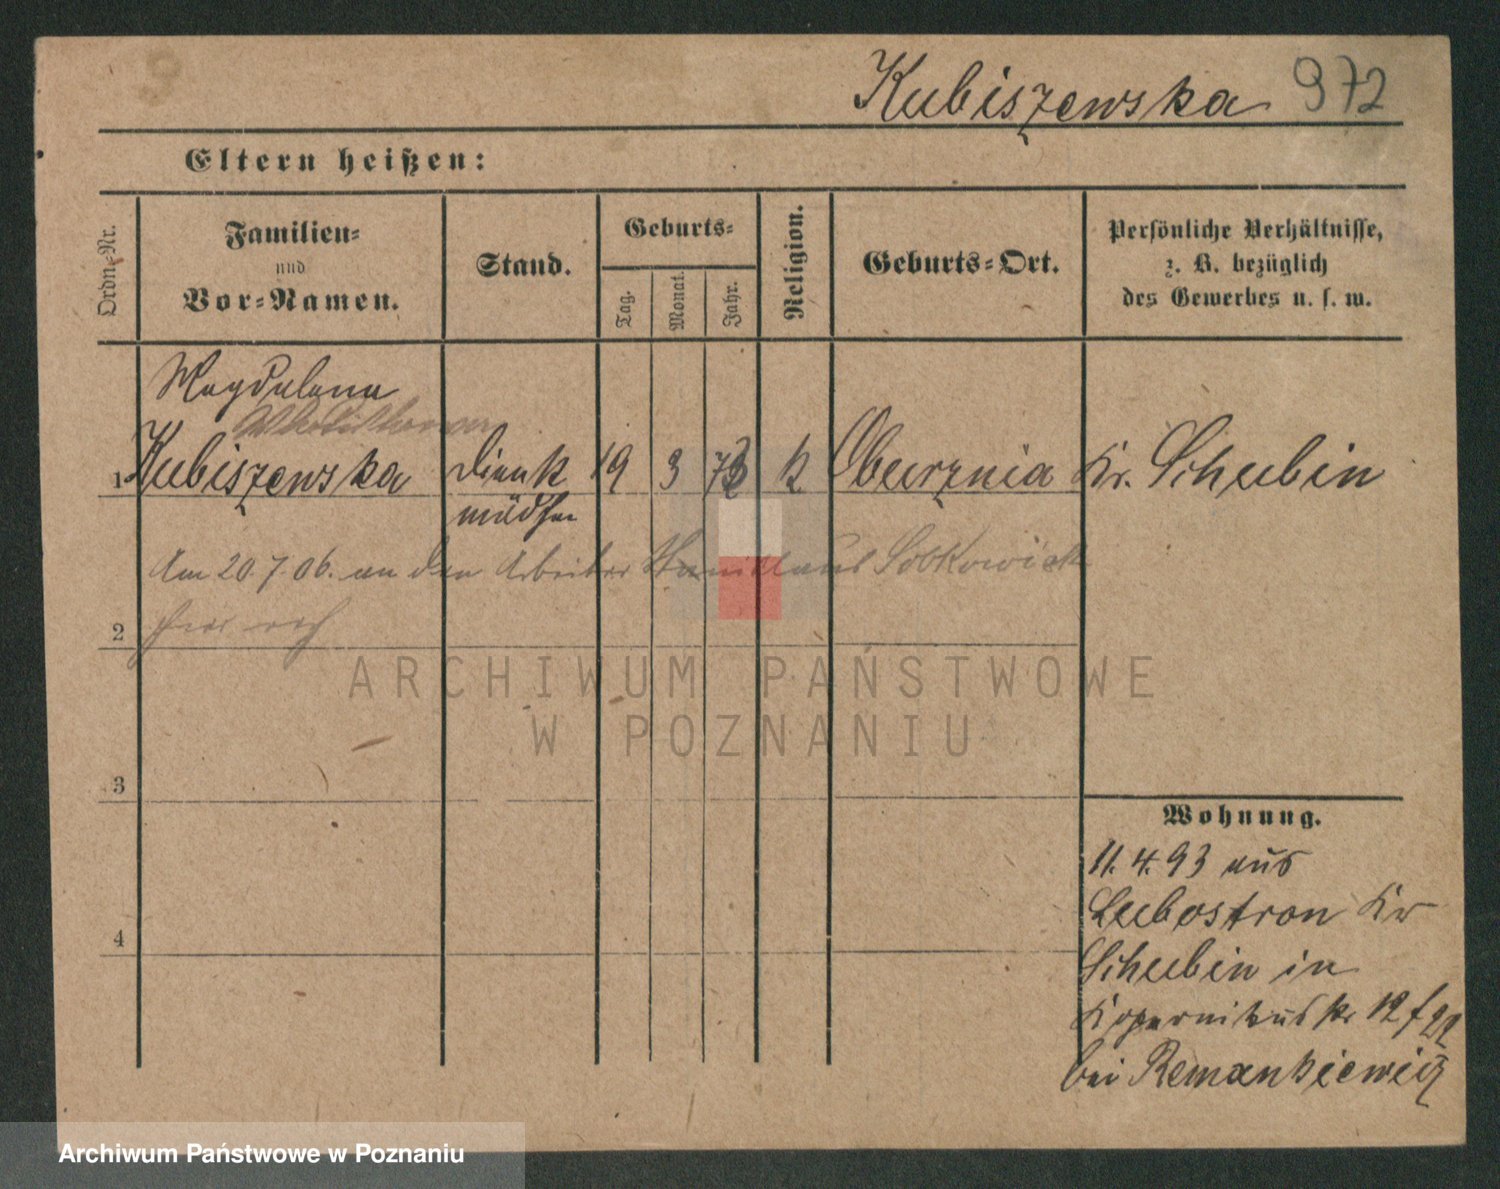 Kubiszewska 972
Eltern heißen:
Ordn.-Nr.
Familien-
und
Vor-Namen.
Stand.
Geburts-
Tag.
Monat.
Jahr.
Religion.
Geburts-Ort.
Persönliche Verhältnisse,
z. B. bezüglich
des Gewerbes u. s. w.
Magdalena
1 Kubiszewska Dienst 19 3 73 k Oburznia Kr. Schubin
mädchen
Am 20.7.06. an den Arbeiter Stanislaus Sobkowiak
2
3
4
Wohnung.
11.4.93 aus
Lubostron Kr
Schubin in
Kopernikusstr 12
bei Romankiewicz
ARCHIWUM PAŃSTWOWE
W POZNANIU
Archiwum Państwowe w Poznaniu